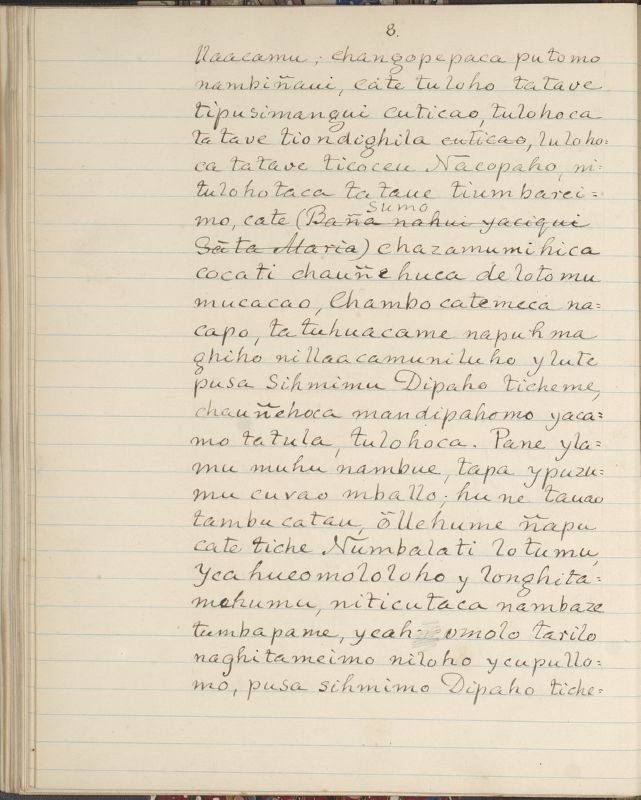 8.
llaacamu; changopepaca putomo
nambiñaui, cate tuloho tatave
tipusimangui cuticao, tulohoca
tatave tiondighila cuticao, luloho=
ca tatave ticoceu Nacopaho, ni=
tulohotaca tatave tiumbarei=
sumo
mo, cate (Baña nahui yaciqui
Sāta Maria) chazamumihica
cocati chauñehuca de lotomu
mucacao, Chambo catemeca na=
capo, tatuhuacame napuhma
ghiho nillaacamuniluho ylute
pusa Sihmimu Dipaho ticheme,
chauñehoca mandipahomo yaca=
mo tatula, tulohoca. Pane yla=
mu muhu nambue, tapa ypuzu=
mu cuvao mballo; hune tauao
tambucatau, öllehume ñapu
cate tiche Numbalati lotumu,
Ycahueomololoho y longhita=
mahumu, niticutaca nambaze
tumbapame, yeah= omolo tarilo
naghitameimo niloho ycupullo=
mo, pusa sihmimo Dipaho tiche=